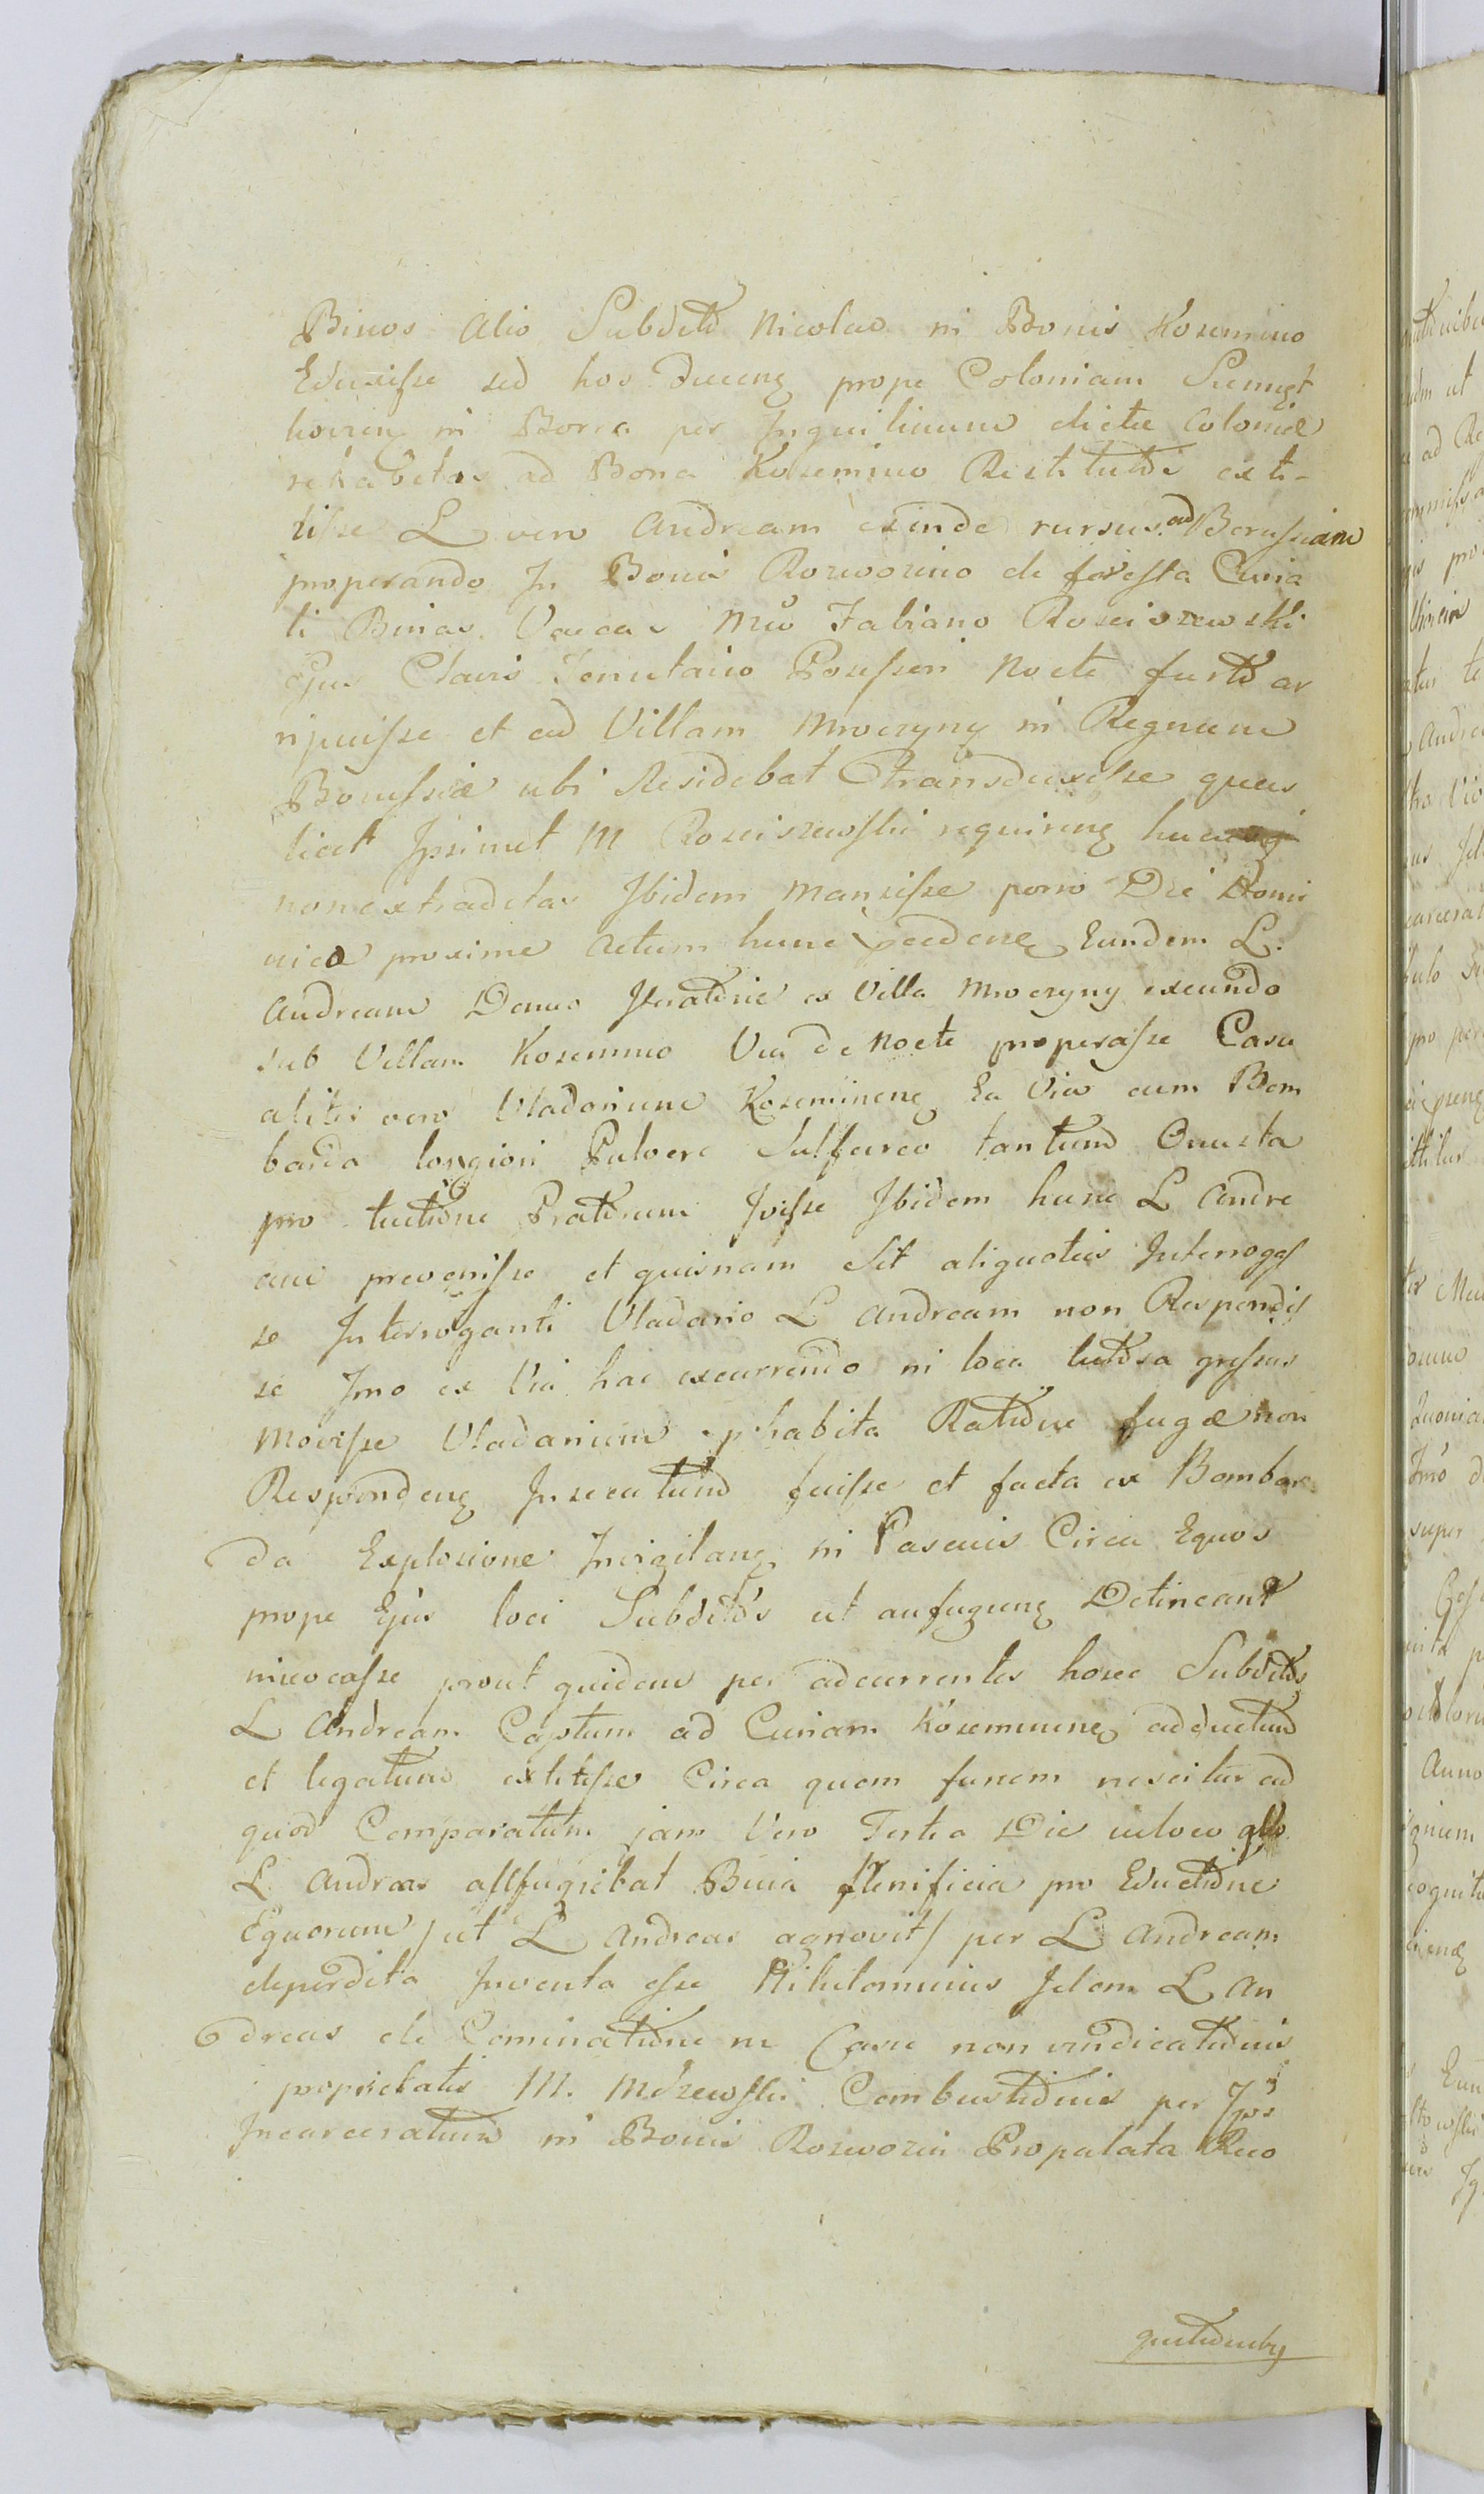 Binos alio Subdito Nicolao in Bonis Kozemino
Eduxisse sed hos Ducenę prope Coloniam
in Borra per Inquilinum dictæ Coloniæ
rehabitos ad Bona Kozemino Restitutos exti-
tisse L vero Andream exinde rursus ad Borussiam
properando In Bonis Rozwozino de foresta Curia
li Binas Vaccas Mco Fabiano Rosciszewski
Ejus Clavis Tenutario Possessori Nocte furto ar
ripuisse et ad Villam Mroczyny in Regnum
Borussiæ ubi Residebat transduxisse quas
licet Ipsimet M Rosciszewski requirenę
non extraditas Ibidem Mansisse porro Die Domi
nica proxime Actum hunc pcedenę Eundem L.
Andream Domo Iteratorie ex Villa Mroczyny exeundo
sub Villam Kozemino Via de Nocte properasse Casu
aliter vero Vladarium Kozeminenę Ea Via cum Bom
barda longiori Pulvere Sulfureo tantum Onusta
pro tuitione Pratorum Ivisse Ibidem hunc L Andre
am prevenisse et quisnam sit aliquoties Interrogas
se Interroganti Vladario L Andream non Respondis
se Imo ex Via hac excurrendo in loca lutosa gressus
Movisse Vladarium phabita Ratione fugæ non
Respondenę Insecutum fuisse et facta ex Bombar
da Explosione Invigilanę in Pascuis Circa Equos
prope Ejus loci Subditos ut aufugienę Detineant
invocasse prout quidem per adcurrentes hosce Subditos
L Andream Captum ad Curiam Kozeminenę adductum
et ligatum extitisse Circa quem funem nescitur ad
quod Comparatum jam Vero Tertia Die in loco qo
L. Andreas affugiebat Bina frenificia pro Eductione
Equorum /ut L Andreas agnovit/ per L Andream
deperdita Inventa esse Nihilominus Idem L An
dreas de Cominatione in Casu non vindicationis
proprietatis M. Mdzewski Combustionis per Ips
Incarceratum in Bonis Rozwozin Propalata Reco
gnitionibꝫ